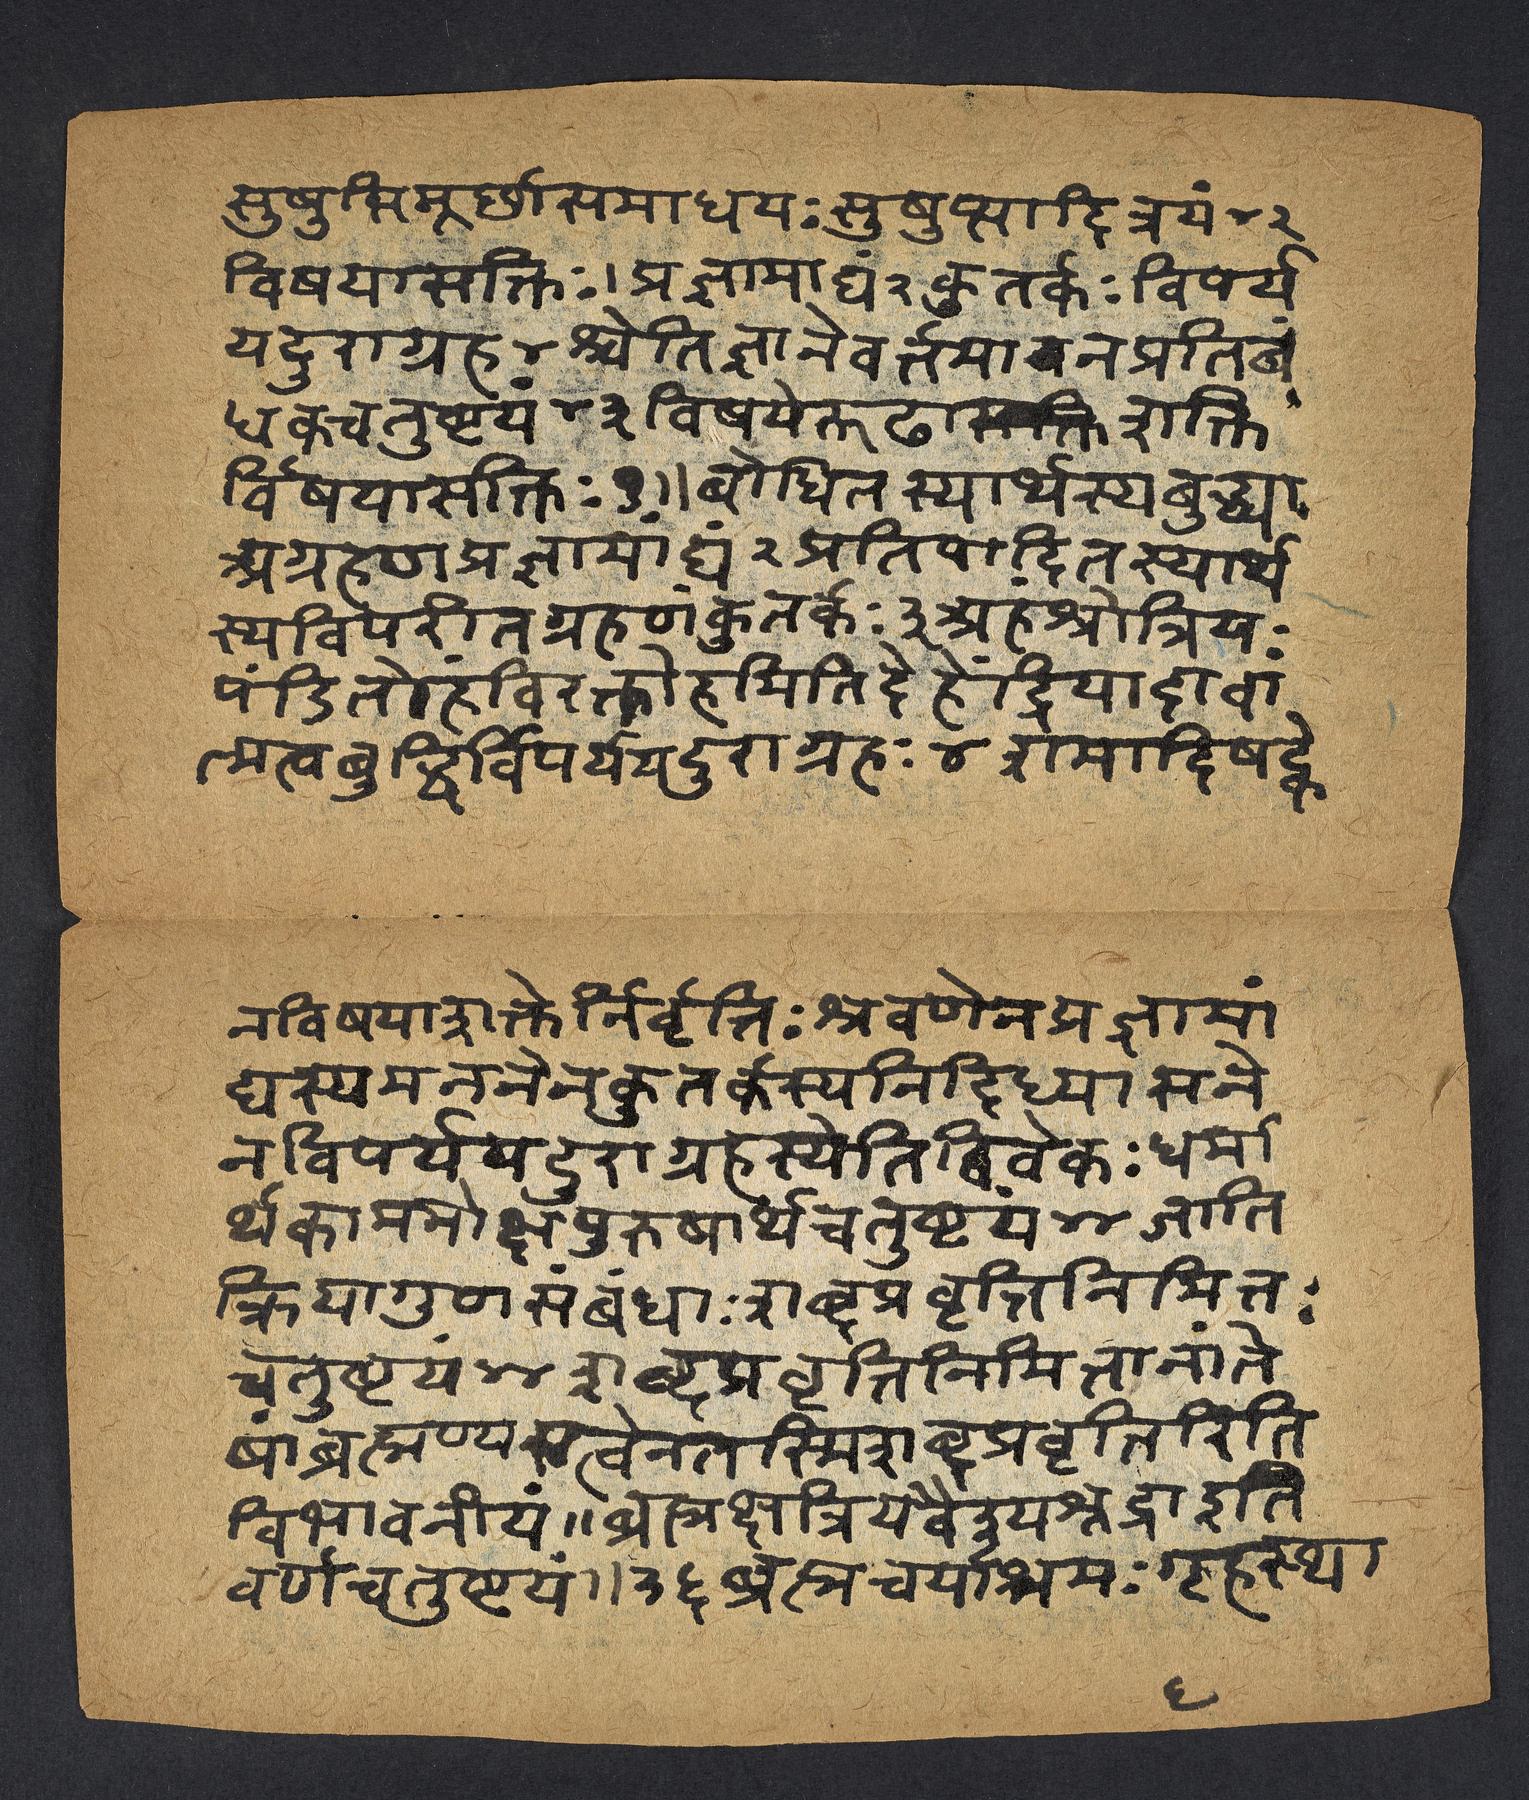 सुषुप्तिमूर्छासमाधयः सुषुप्त्यादित्रयं ४२
विषयासक्तिः १ प्रज्ञामाद्यं २ कुतर्कः विपर्य
यदुराग्रह ४ श्चेतिज्ञानेवर्त्तमानप्रतिबं
धकचतुष्टयं ४३ विषयेदृढासक्तिरासक्ति
र्विषयासक्तिः १॥ बोधितस्यार्थस्यबुद्ध्या
अग्रहणप्रज्ञामांद्यं २ प्रतिपादितस्यार्थ
स्यविपरीतग्रहणंकुतर्कः ३ अहंश्रोत्रियः
पंडितोहंविरक्तोहमितिदेहेंद्रियादावां
त्मत्वबुद्धिर्विपर्ययदुराग्रहः ४ शमादिषट्के
नविषयाशक्तेर्निर्वृत्तिः श्रवणेनप्रज्ञामां
द्यस्यमननेनकुतर्कस्यनिदिध्यासने
नविपर्ययदुराग्रहस्येतिविवेकः धर्मा
र्थकाममोक्षपुरुषार्थचतुष्टयं ४४ जाति
क्रियागुणसंबंधाः शब्दप्रवृत्तिनिमित्तः
चतुष्टयं ४४ शब्दप्रवृत्तिनिमित्तानांते
षांब्रह्मण्यसत्वेनतस्मिशब्दप्रवृतिरिति
विभावनीयं॥ ब्रह्मक्षत्रियवैश्यशूद्राइति
वर्णचतुष्टयं॥ ३६ ब्रह्मचर्याश्रमः गृहस्था
६